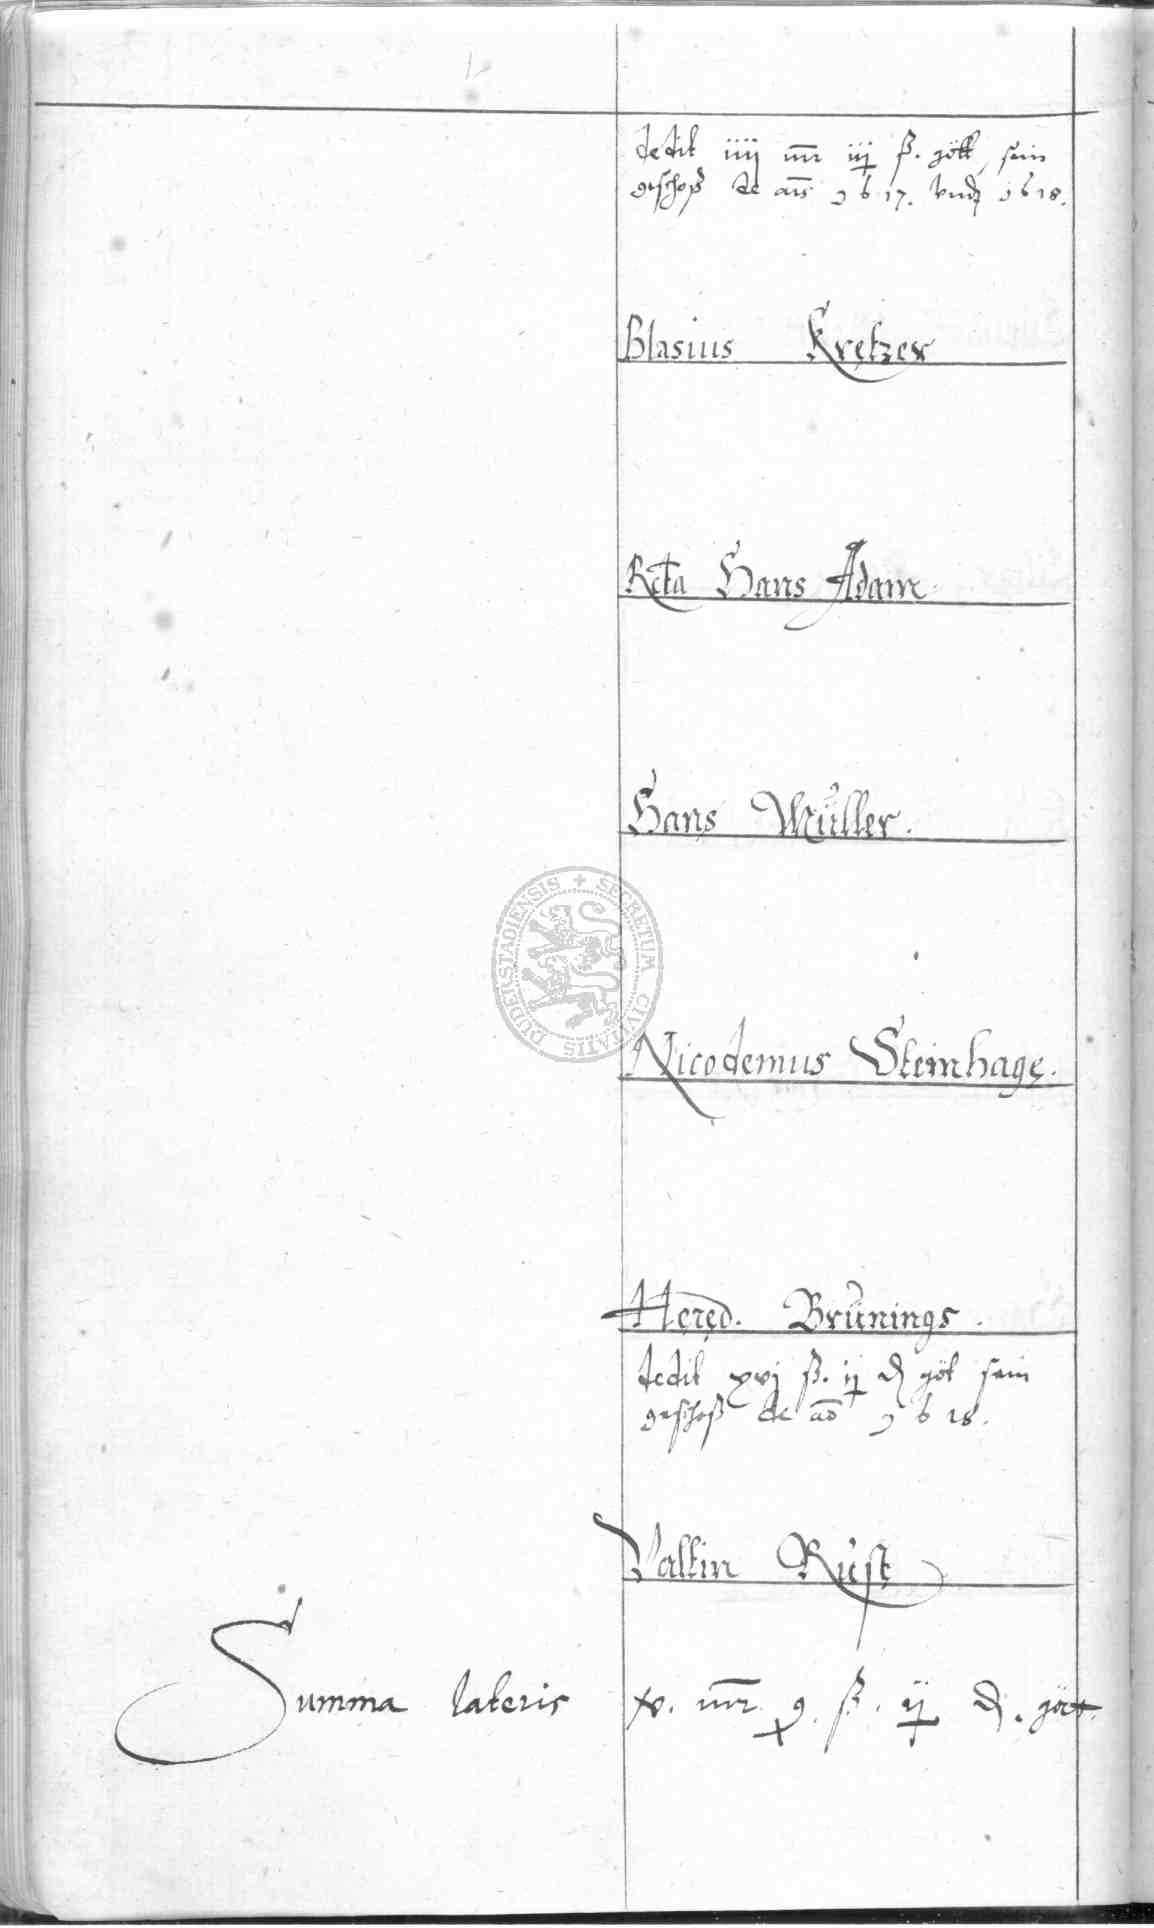 dedit iiij mr iij ß. gött sein
geschoß de ais 1617. vnd 1618.
Blasius Kretzer
Rcta Hans Adam
Hans Müller.
SECRETUM CIVITATIS DUDERSTADIENSIS
Nicodemus Steinhage.
Hered. Brünings.
dedit xvj ß. ij d gött sein
geschoß de ao 1618.
Valtin Rust
Summa lateris x. mr 9. ß. ij d. gött.